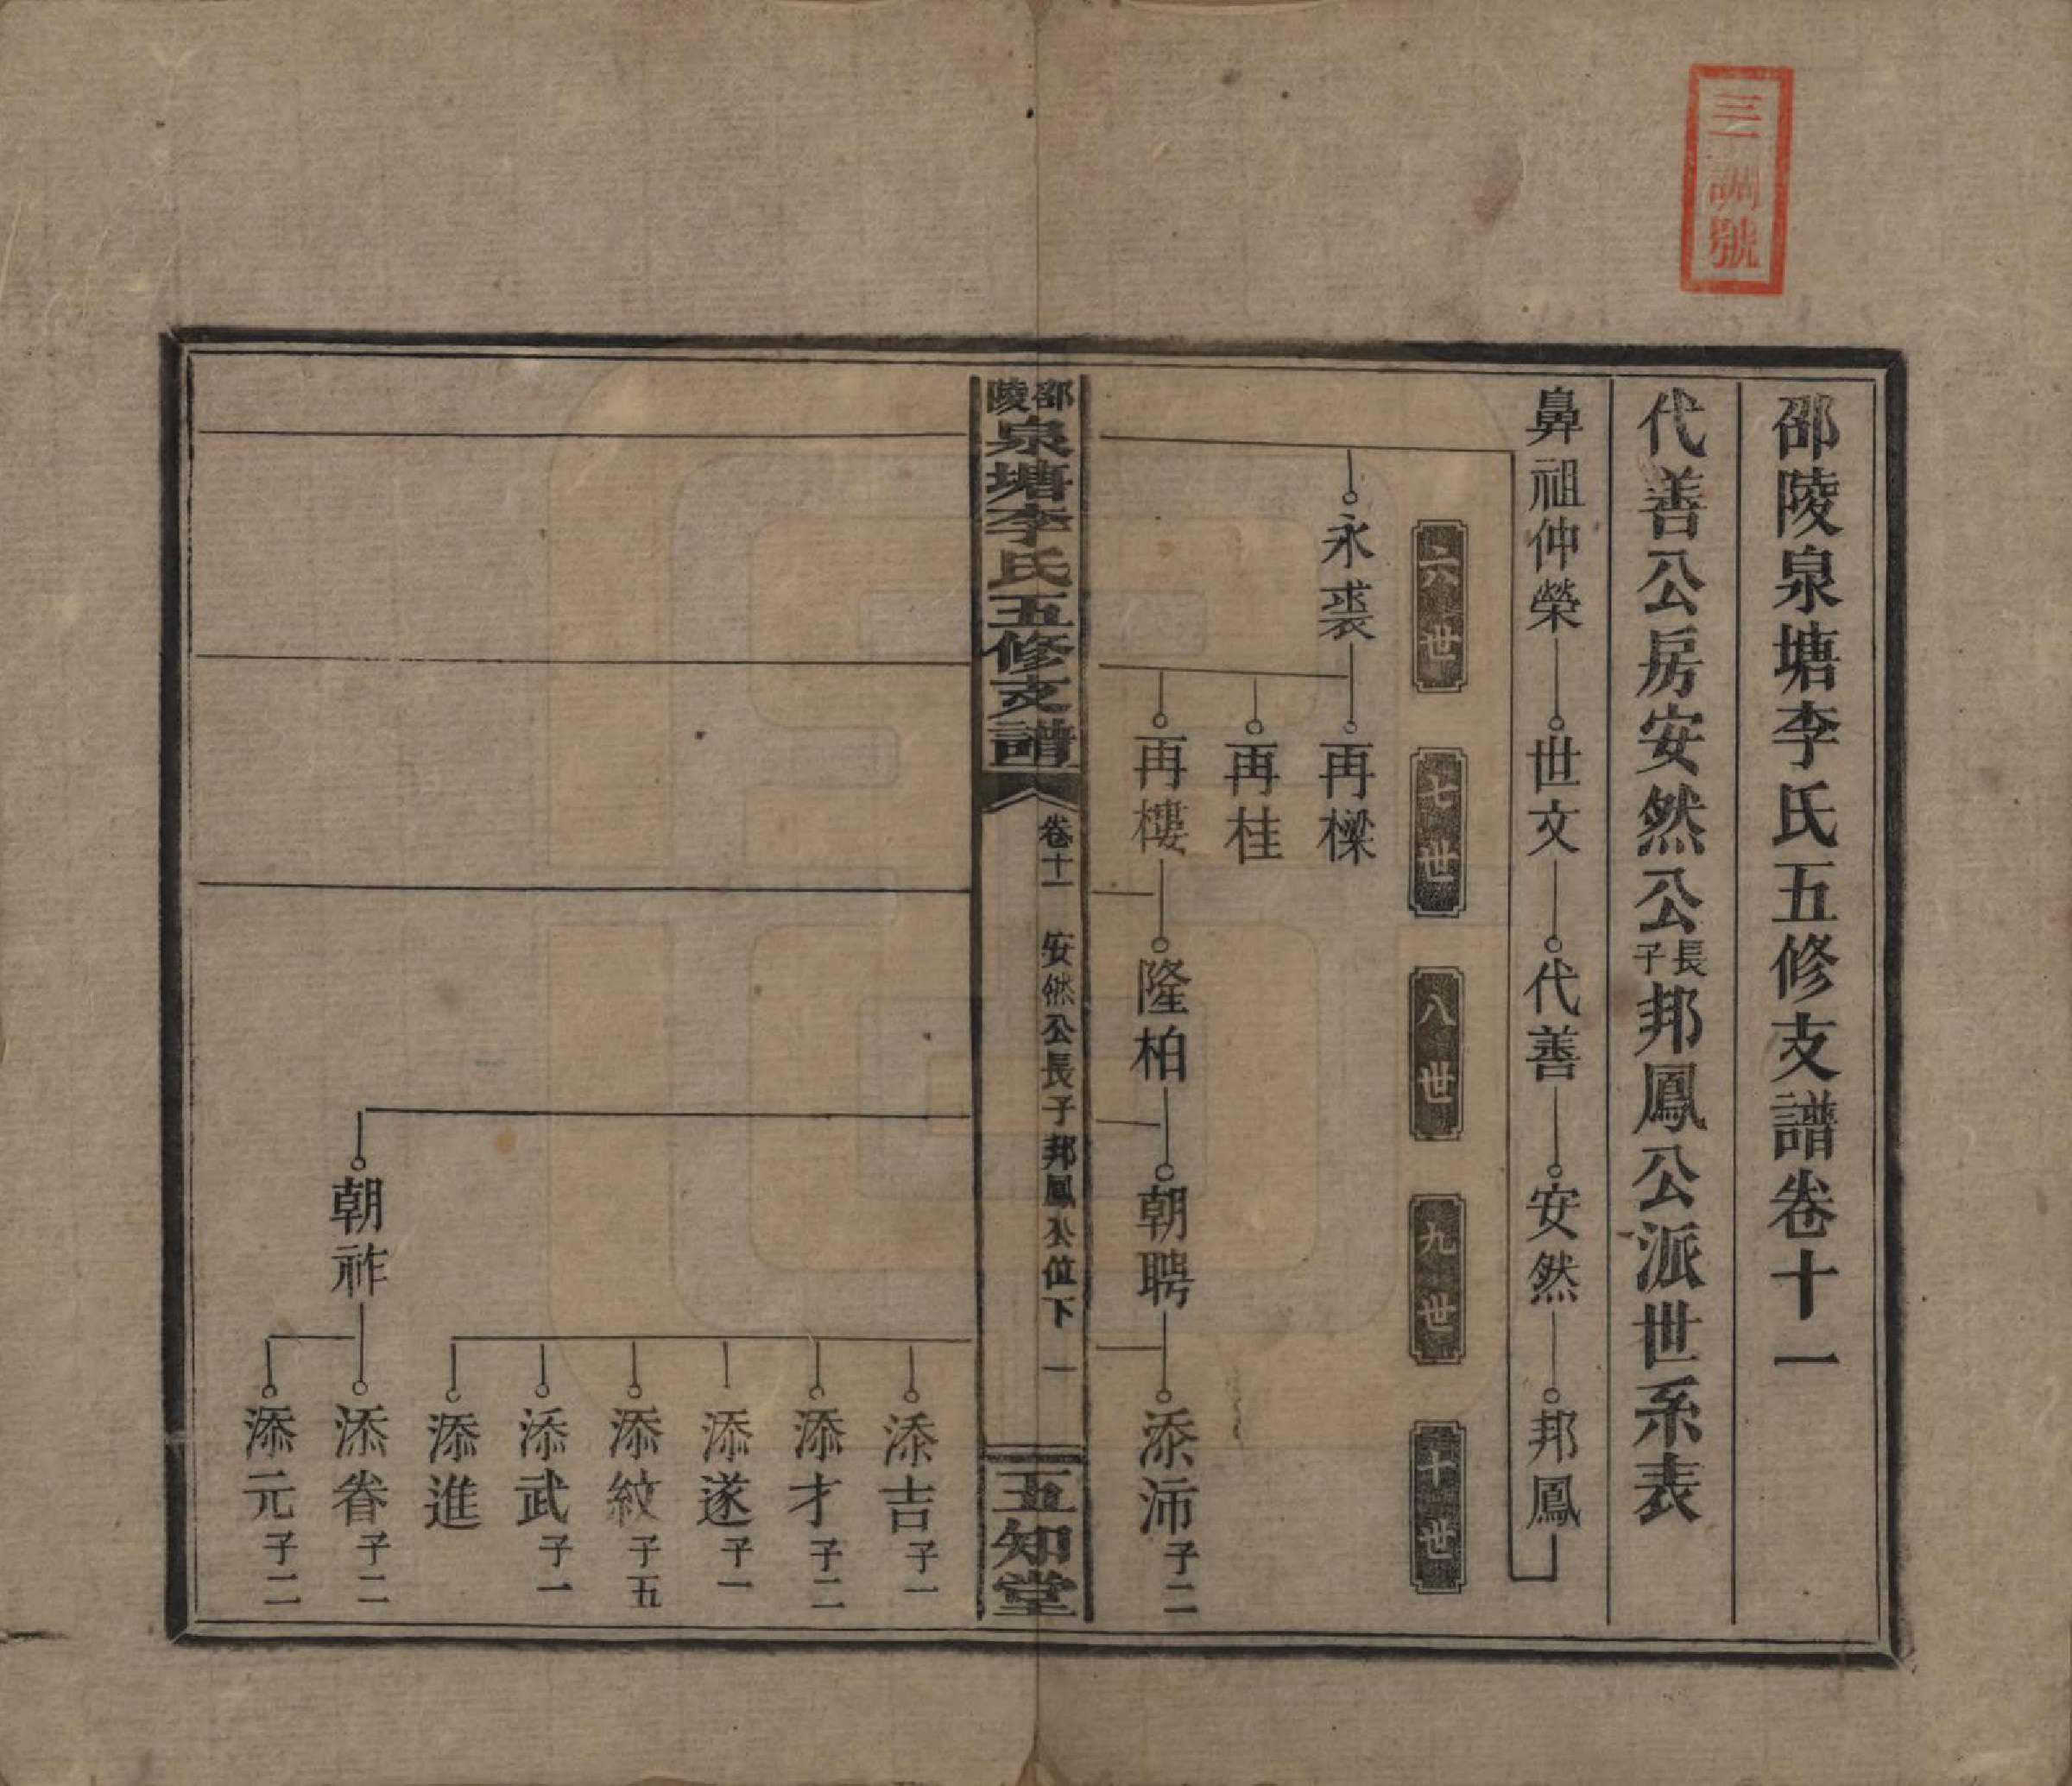 三調號
邵陵泉塘李氏五修支譜卷十一
代善公房安然公長子邦鳳公派世系表
鼻祖仲榮 世文 代善 安然 邦鳳
六世 七世 八世 九世 十世
永裘 再樑
再桂
再樓 隆柏 朝聘 添沛 子二
邵陵泉塘李氏五修支譜 卷十一 安然公長子邦鳳公位下 一 五知堂
添吉 子一
添才 子二
添遂 子一
添紋 子五
添武 子一
添進
朝祚 添眷 子二
添元 子二